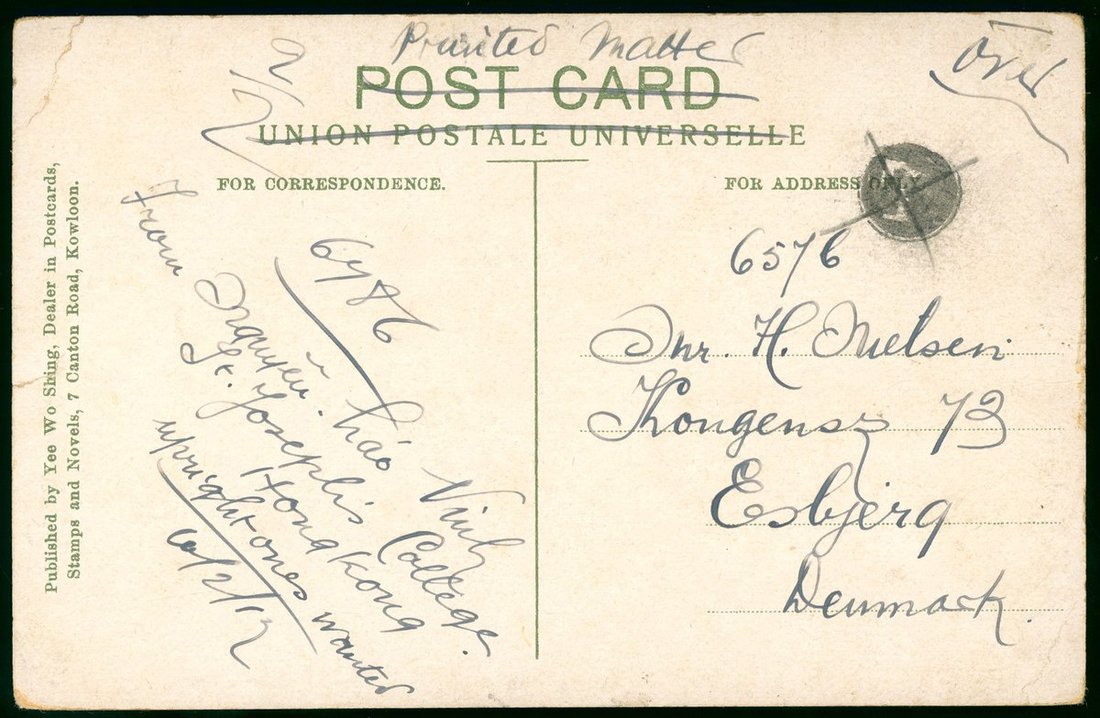 Printed Matter
Over
POST CARD
UNION POSTALE UNIVERSELLE
FOR CORRESPONDENCE.
FOR ADDRESS ONLY.
Published by Yee Wo Shing, Dealer in Postcards,
Stamps and Novels, 7 Canton Road, Kowloon.
6786
From Nguyễn. háo Vinh
St. Joseph's College.
Hong Kong
upright ones wanted
6/2/12
6576
Mr. H. Nielsen
Kongensg 73
Esbjerg
Denmark.